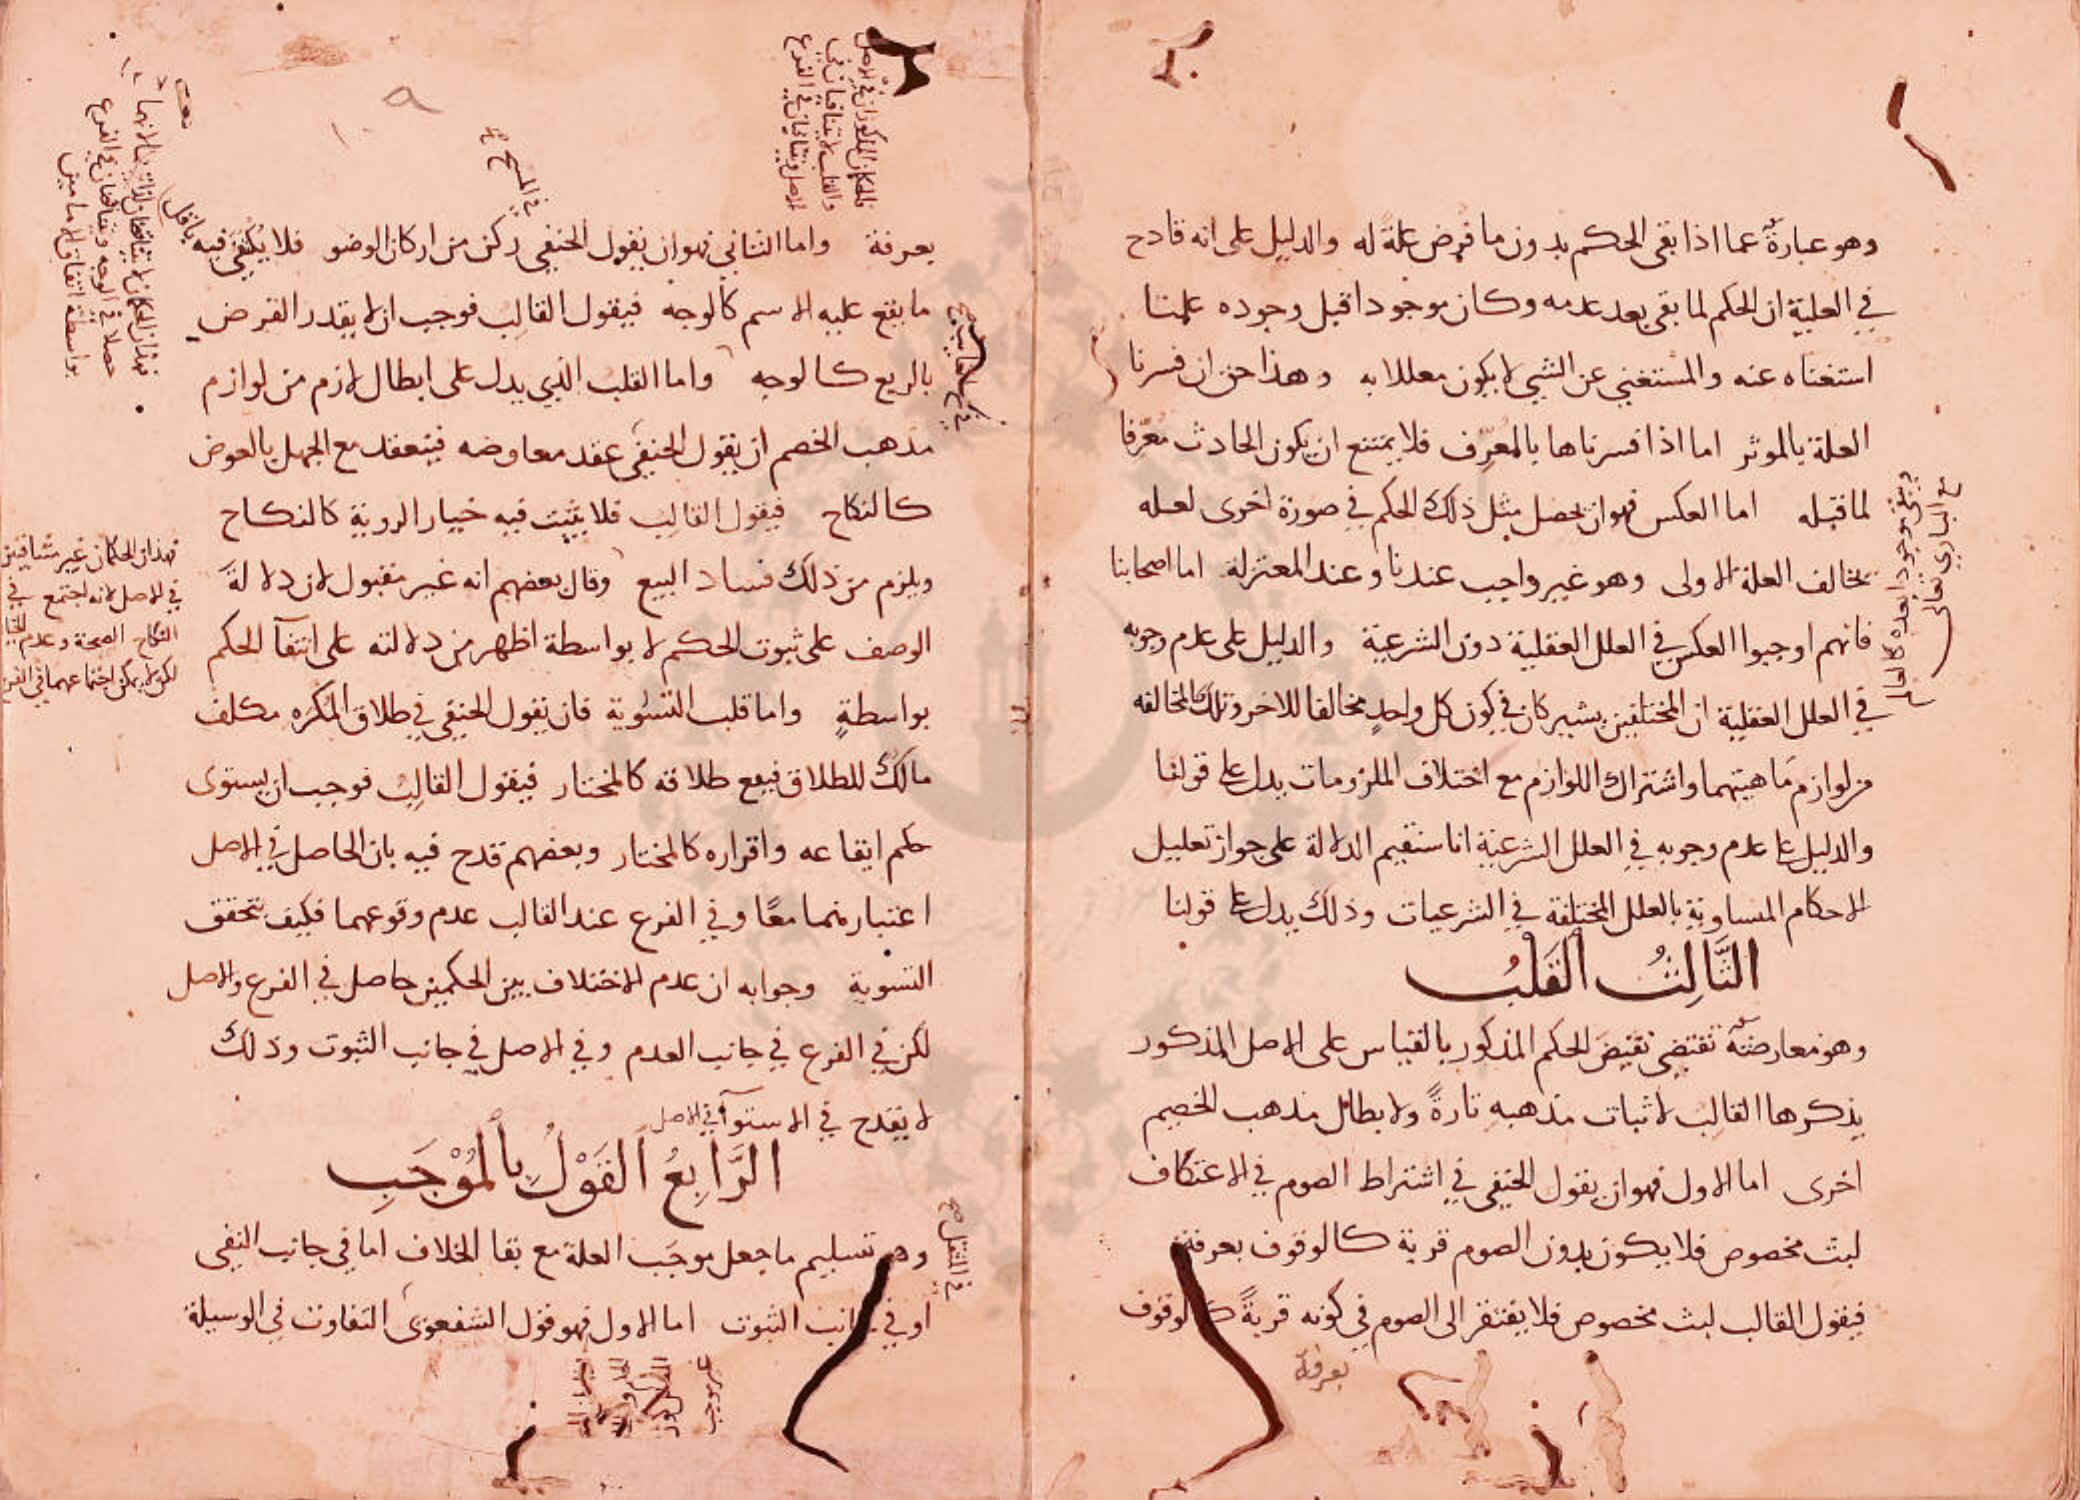 وهو عبارة عما اذا بقى الحكم بدون ما فرض علة له والدليل على انه قادح
في العلية ان الحكم لما بقى بعد عدمه وكان موجودا قبل وجوده علمنا
استغناه عنه والمستغني عن الشي لا يكون معللا به وهذا حق ان فسرنا
العلة بالموثر اما اذا فسرناها بالمعرف فلا يمتنع ان يكون الحادث معرفا
لما قبله اما العكس فهو ان يحصل مثل ذلك الحكم في صورة اخرى لعله
تخالف العلة الاولى وهو غير واجب عندنا وعند المعتزلة اما اصحابنا
فانهم اوجبوا العكس في العلل العقلية دون الشرعية والدليل على عدم وجوبه
في العلل العقلية ان المختلفين يشتركان في كون كل واحد مخالفا للاخر وتلك المخالفه
من لوازم ماهيتهما واشتراك اللوازم مع اختلاف الملزومات يدل على قولنا
والدليل على عدم وجوبه في العلل الشرعية انا سنقيم الدلالة على جواز تعليل
الاحكام المتساوية بالعلل المختلفة في الشرعيات وذلك يدل على قولنا
الثَّالِثُ القَلبُ
وهو معارضة تقتضي نقيض الحكم المذكور بالقياس على الاصل المذكور
يذكرها القالب لاثبات مذهبه تارةً ولابطال مذهب الخصم
اخرى اما الاول فهو ان يقول الحنفي في اشتراط الصوم في الاعتكاف
لبث مخصوص فلا يكون بدون الصوم قربة كالوقوف بعرفة
فيقول القالب لبث مخصوص فلا يفتقر الى الصوم في كونه قربةً كالوقوف
بعرفة
ويبقى موجودا بعده كالعالم
مع الباري تعالى
بعرفة واما الثاني فهو ان يقول الحنفي ركن من اركان الوضو فلا يكتفى فيه باقل
ما يقع عليه الاسم كالوجه فيقول القالب فوجب ان لا يقدر الفرض
بالربع كالوجه واما القلب الذي يدل على ابطال لازم من لوازم
مذهب الخصم ان يقول الحنفي عقد معاوضه فينعقد مع الجهل بالعوض
كالنكاح فيقول القالب فلا يثبت فيه خيار الروية كالنكاح
ويلزم من ذلك فساد البيع وقال بعضهم انه غير مقبول لان دلالة
الوصف على ثبوت الحكم لا بواسطة اظهر من دلالته على انتفآ الحكم
بواسطةٍ واما قلب التسوية فان يقول الحنفي في طلاق المكره مكلف
مالك للطلاق فيقع طلاقه كالمختار فيقول القالب فوجب ان يستوى
حكم ايقاعه واقراره كالمختار وبعضهم قدح فيه بان الحاصل في الاصل
اعتبارهما معًا وفي الفرع عند القالب عدم وقوعهما فكيف تتحقق
التسوية وجوابه ان عدم الاختلاف بين الحكمين حاصل في الفرع والاصل
لكن في الفرع في جانب العدم وفي الاصل في جانب الثبوت وذلك
لا يقدح في الاستوآ في الاصل
الرَّابِعُ القَوْلُ بِالْمُوْجَبِ
وهو تسليم ما جعل موجب العلة مع بقا الخلاف اما في جانب النفي
او في جانب الثبوت اما الاول فهو قول الشفعوى التفاوت في الوسيلة
في المسح
فهذان الحكمان غير متنافيين
في الاصل لانه اجتمع في
النكاح الصحة وعدم الخيار
لكن لا يمكن اجتماعهما في الفرع